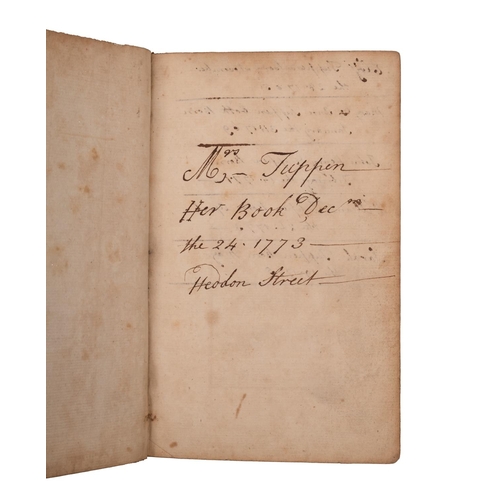 Mrs Tuppen
Her Book Decm
the 24. 1773
Heddon Street